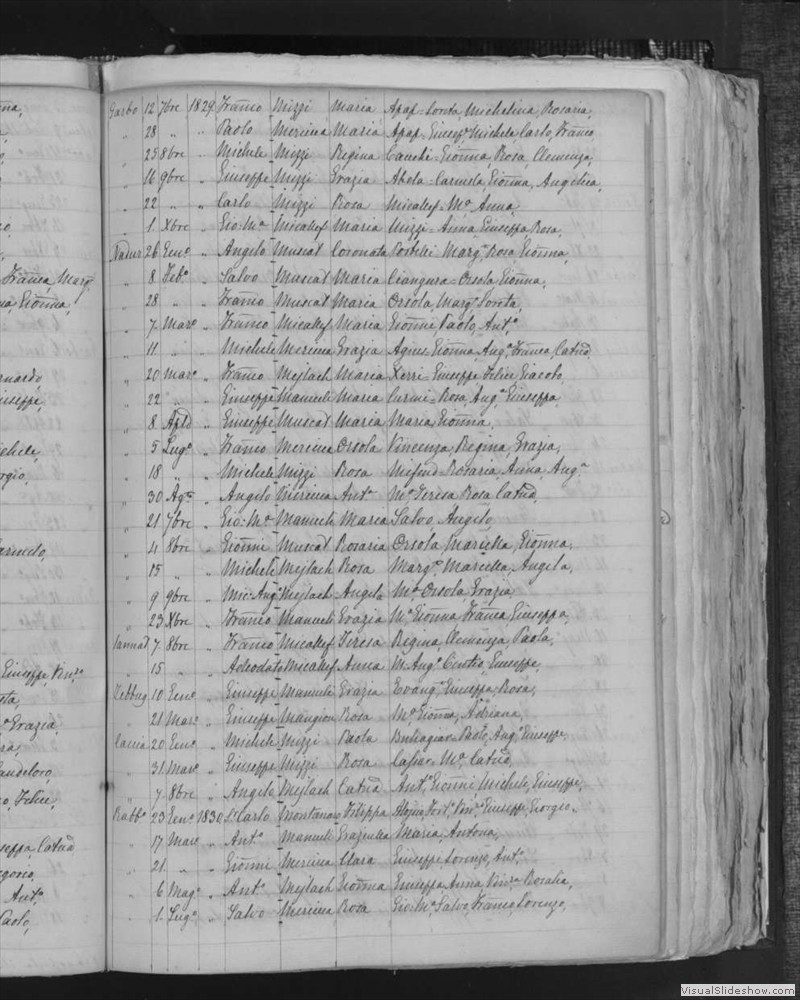 ena,
Garbo 12 7bre 1829. Franco Mizzi Maria Apap Loreta, Michelina, Rosaria,
" 28 " " Paolo Mercieca Maria Apap, Giusepe Michele, Carlo, Franco
" 25 8bre " Michele Mizzi Regina Cauchi Gionna, Rosa, Clemenza,
" 16 9bre " Giuseppe Mizzi Grazia Abela Carmela, Gionna, Angelica,
" 22 " " Carlo Mizzi Rosa Micallef Ma Anna,
" 1 Xbre " Gio: Ma Micallef Maria Mizzi Anna, Giuseppa, Rosa,
Nadur 26 Geno " Angelo Muscat Coronata Portelli Marga Rosa, Gionna,
Franca, Marg
" 8 Febo " Salvo Muscat Maria Ciangura Orsola, Gionna,
na, Gionna,
" 28 " " Franco Muscat Maria Orsola, Marga Loreta,
" 7 Maro " Franco Micallef Maria Gionni Paolo, Anto
" 11 " " Michele Mercieca Grazia Agnes Gionna, Anga Franca, Catna
rnardo,
" 20 Maro " Franco Mejlach Maria Xerri Giuseppe Felice Giacobo
iuseppe,
" 22 " " Giuseppe Manueli Maria Curmi Rosa, Anga Giuseppa
" 8 Aple " Giuseppe Muscat Maria Maria, Gionna,
" 5 Lugo " Franco Mercieca Orsola Vincenza, Regina, Grazia,
ichele,
" 18 " " Michele Mizzi Rosa Mifsud Rosaria, Anna, Anga
rgio,
" 30 Ago " Angelo Mercieca Anta Ma Teresa Rosa Catna
" 21 7bre " Gio: Ma Manueli Maria Salvo, Angelo,
armelo,
" 4 8bre " Gionni Muscat Rosaria Orsola, Marietta, Gionna,
" 15 " " Michele Mejlach Rosa Marga, Marietta, Angela,
" 9 9bre " Mic: Ango Mejlach Angela Ma Orsola, Grazia,
" 23 Xbre " Franco Manueli Grazia Ma Gionna, Franca, Giuseppa,
Sannat 7 8bre " Franco Micallef Teresa Regina, Clemenza, Paola,
Giuseppe, Vinzo
" 15 " " Adeodato Micallef Anna M. Anga Giuseppe,
Zebbug 10 Geno " Giuseppe Manueli Grazia Evanga Giuseppa, Rosa,
a Grazia,
" 21 Maro " Giuseppe Mangion Rosa Ma Gionna, Adriana,
Caccia 20 Geno " Michele Mizzi Paola Buttagiar Paolo, Ango Giuseppe,
andeloro,
" 31 Maro " Giuseppe Mizzi Rosa Ma Catna
o, Felice,
" 7 8bre " Angelo Mejlach Catna Anto Gionni Michele, Giuseppe,
Rabbo 23 Geno 1830. Carlo Montanaro Filippa Vinzo Giuseppe, Giorgio
" 17 Maro " Anto Manueli Graziulla Maria, Antona,
seppa, Catna
" 21 " " Gionni Mercieca Clara Giuseppe Lorenzo, Anto
Anto
" 6 Mago " Anto Mejlach Gionna Giuseppa Anna, Vinza Rosalia,
Paolo,
" 1 Lugo " Salvo Mercieca Rosa Gio: Ma, Salvo, Franco, Lorenzo,
VisualSlideshow.com